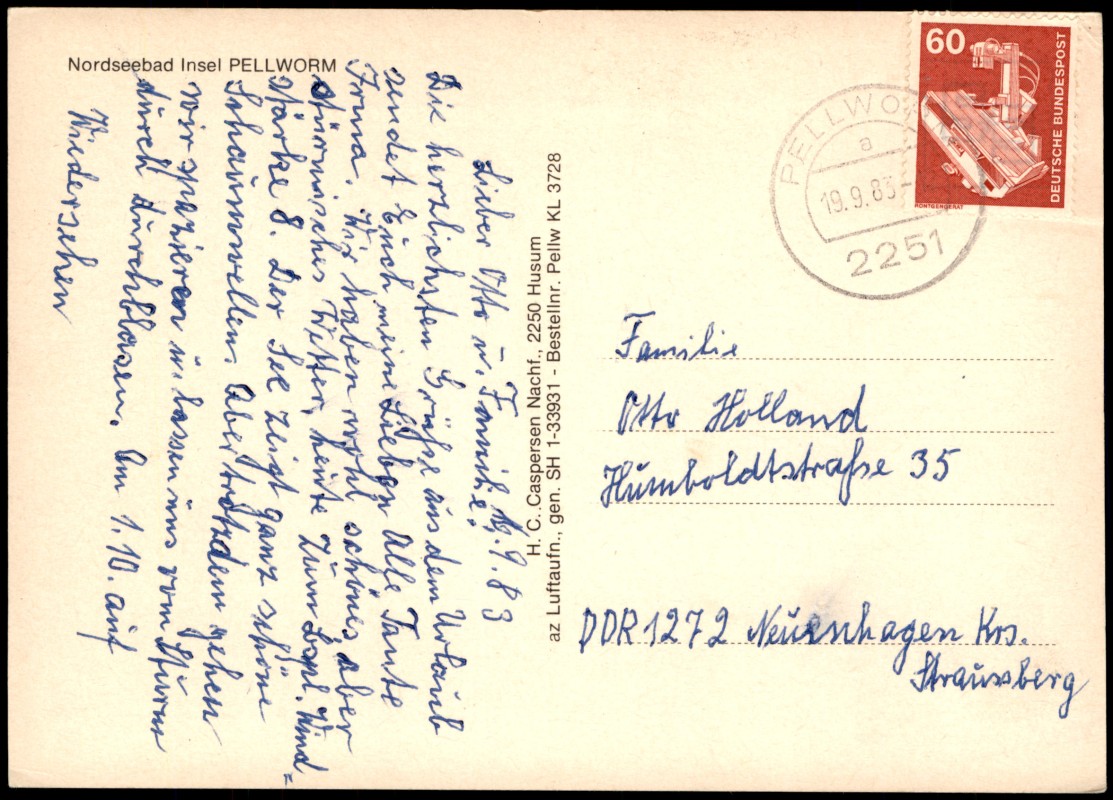 Nordseebad Insel PELLWORM
19.9.83
Lieber Otto u. Familie!
Die herzlichsten Grüße aus dem Urlaub
sendet Euch meine Lieben Alle Tante
Irma. Wir haben wohl schönes aber
stürmisches Wetter, heute zum Bspl. Wind=
stärke 8. Der See zeigt ganz schöne
Schaumwellen. Aber trotzdem gehen
wir spazieren u. lassen uns vom Sturm
durch durchblasen. Am 1.10. auf
Wiedersehen
H. C. Caspersen Nachf., 2250 Husum
az Luftaufn., gen. SH 1-33931 - Bestellnr. Pellw KL 3728
60
DEUTSCHE BUNDESPOST
RÖNTGENGERÄT
PELLWO
a
19.9.83-
2251
Familie
Otto Holland
Humboldtstraße 35
DDR 1272 Neuenhagen Krs.
Strausberg